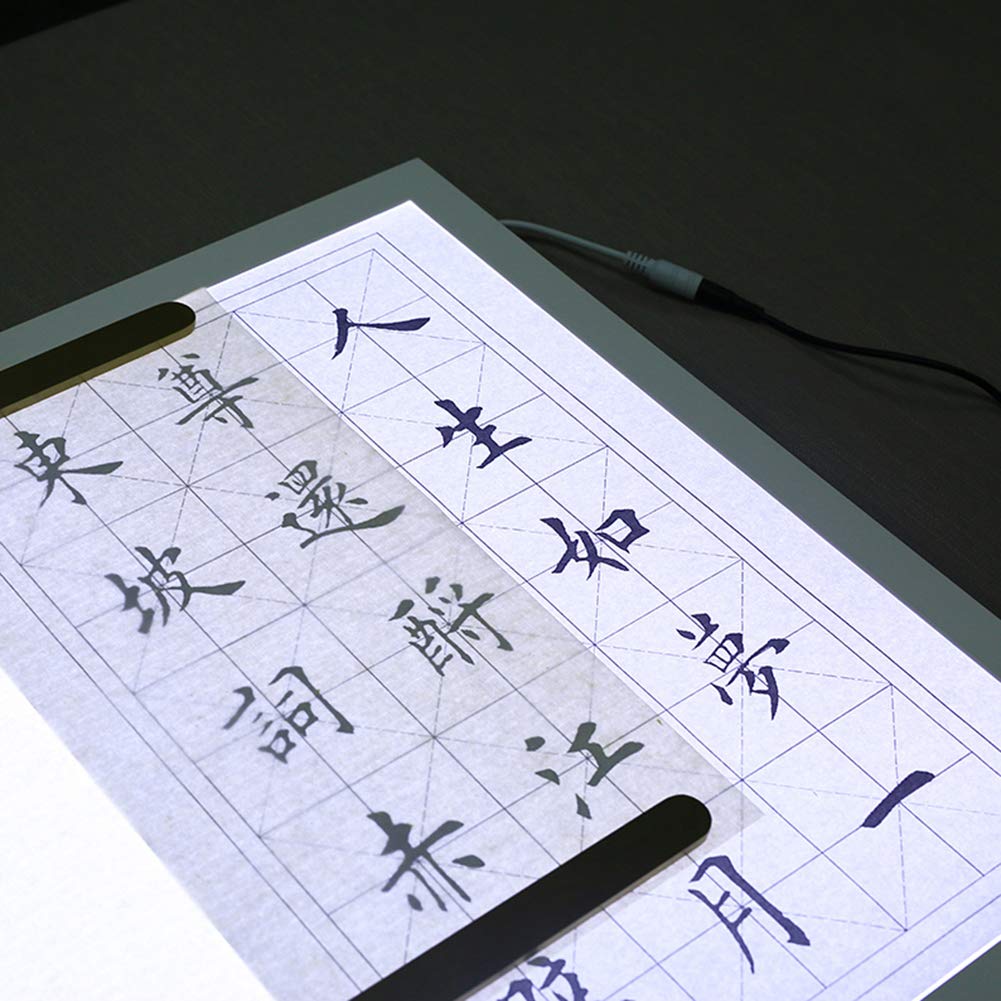 人生如夢一
尊還酹江月
東坡詞赤